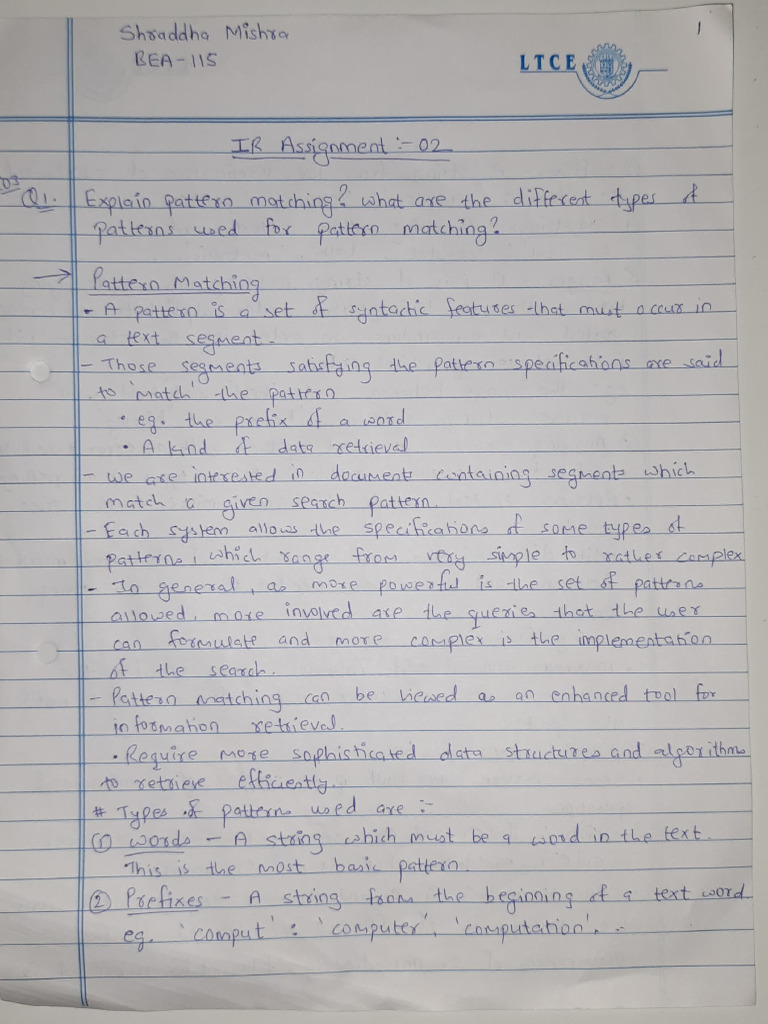 Shraddha Mishra
1
BEA-115
LTCE
IR Assignment :- 02
03
Q1. Explain pattern matching? What are the different types of
patterns used for pattern matching?
→ Pattern Matching
- A pattern is a set of syntactic features that must occur in
a text segment.
- Those segments satisfying the pattern specifications are said
to 'match' the pattern
• eg. the prefix of a word
• A kind of data retrieval
- We are interested in documents containing segments which
match a given search pattern.
- Each system allows the specifications of some types of
patterns, which range from very simple to rather complex
- In general, as more powerful is the set of patterns
allowed, more involved are the queries that the user
can formulate and more complex is the implementation
of the search.
- Pattern matching can be viewed as an enhanced tool for
information retrieval.
• Require more sophisticated data structures and algorithms
to retrieve efficiently.
# Types of patterns used are :-
① Words - A string which must be a word in the text.
This is the most basic pattern.
② Prefixes - A string from the beginning of a text word
eg. 'comput' : 'computer', 'computation', ..